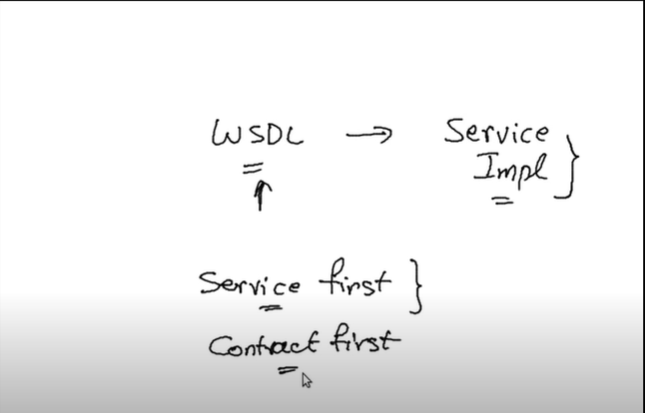 WSDL → Service
Impl
Service first
Contract first